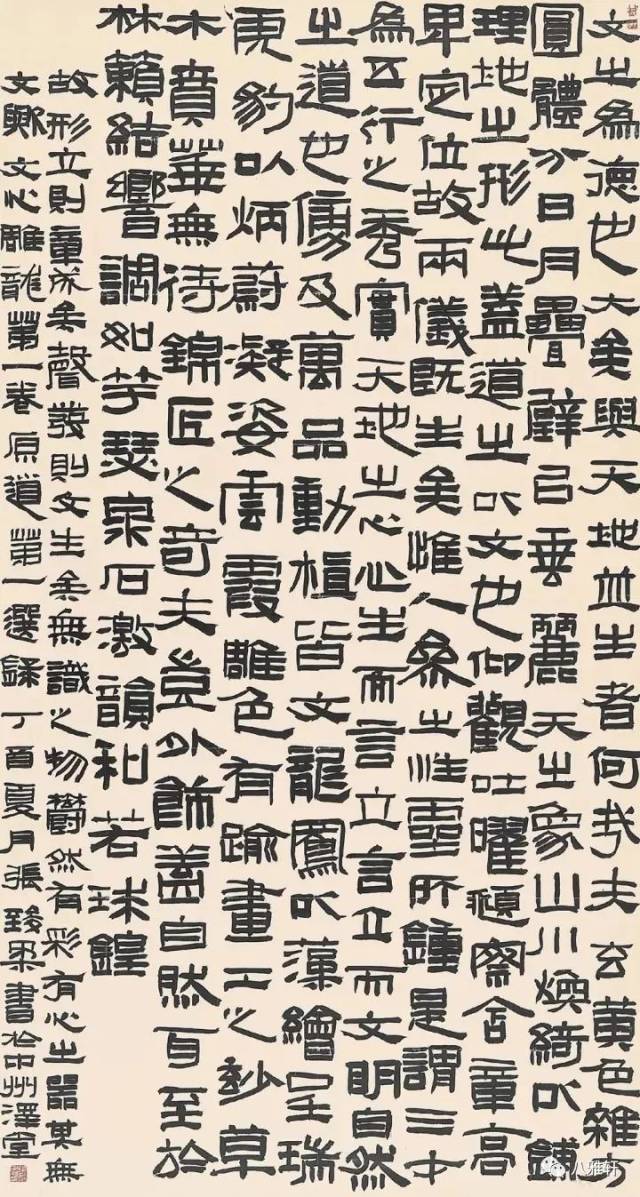 文之為德也大矣與天地並生者何哉夫玄黃色雜方
圓體分日月疊璧以垂麗天之象山川煥綺以鋪
理地之形此蓋道之以文也仰觀吐曜頫察含章高
卑定位故兩儀既生矣惟人參之性靈所鍾是謂三才
為五行之秀實天地之心心生而言立言立而文明自然
之道也傍及萬品動植皆文龍鳳以藻繪呈瑞
虎豹以炳蔚凝姿雲霞雕色有踰畫工之妙草
木賁華無待錦匠之奇夫豈外飾蓋自然耳至於
林籟結響調如竽瑟泉石激韻和若球鍠
故形立則章成矣聲發則文生矣無識之物鬱然有彩有心之器其無
文歟文心雕龍第一卷原道第一選錄丁酉夏月張書於中州澤堂
八雅轩